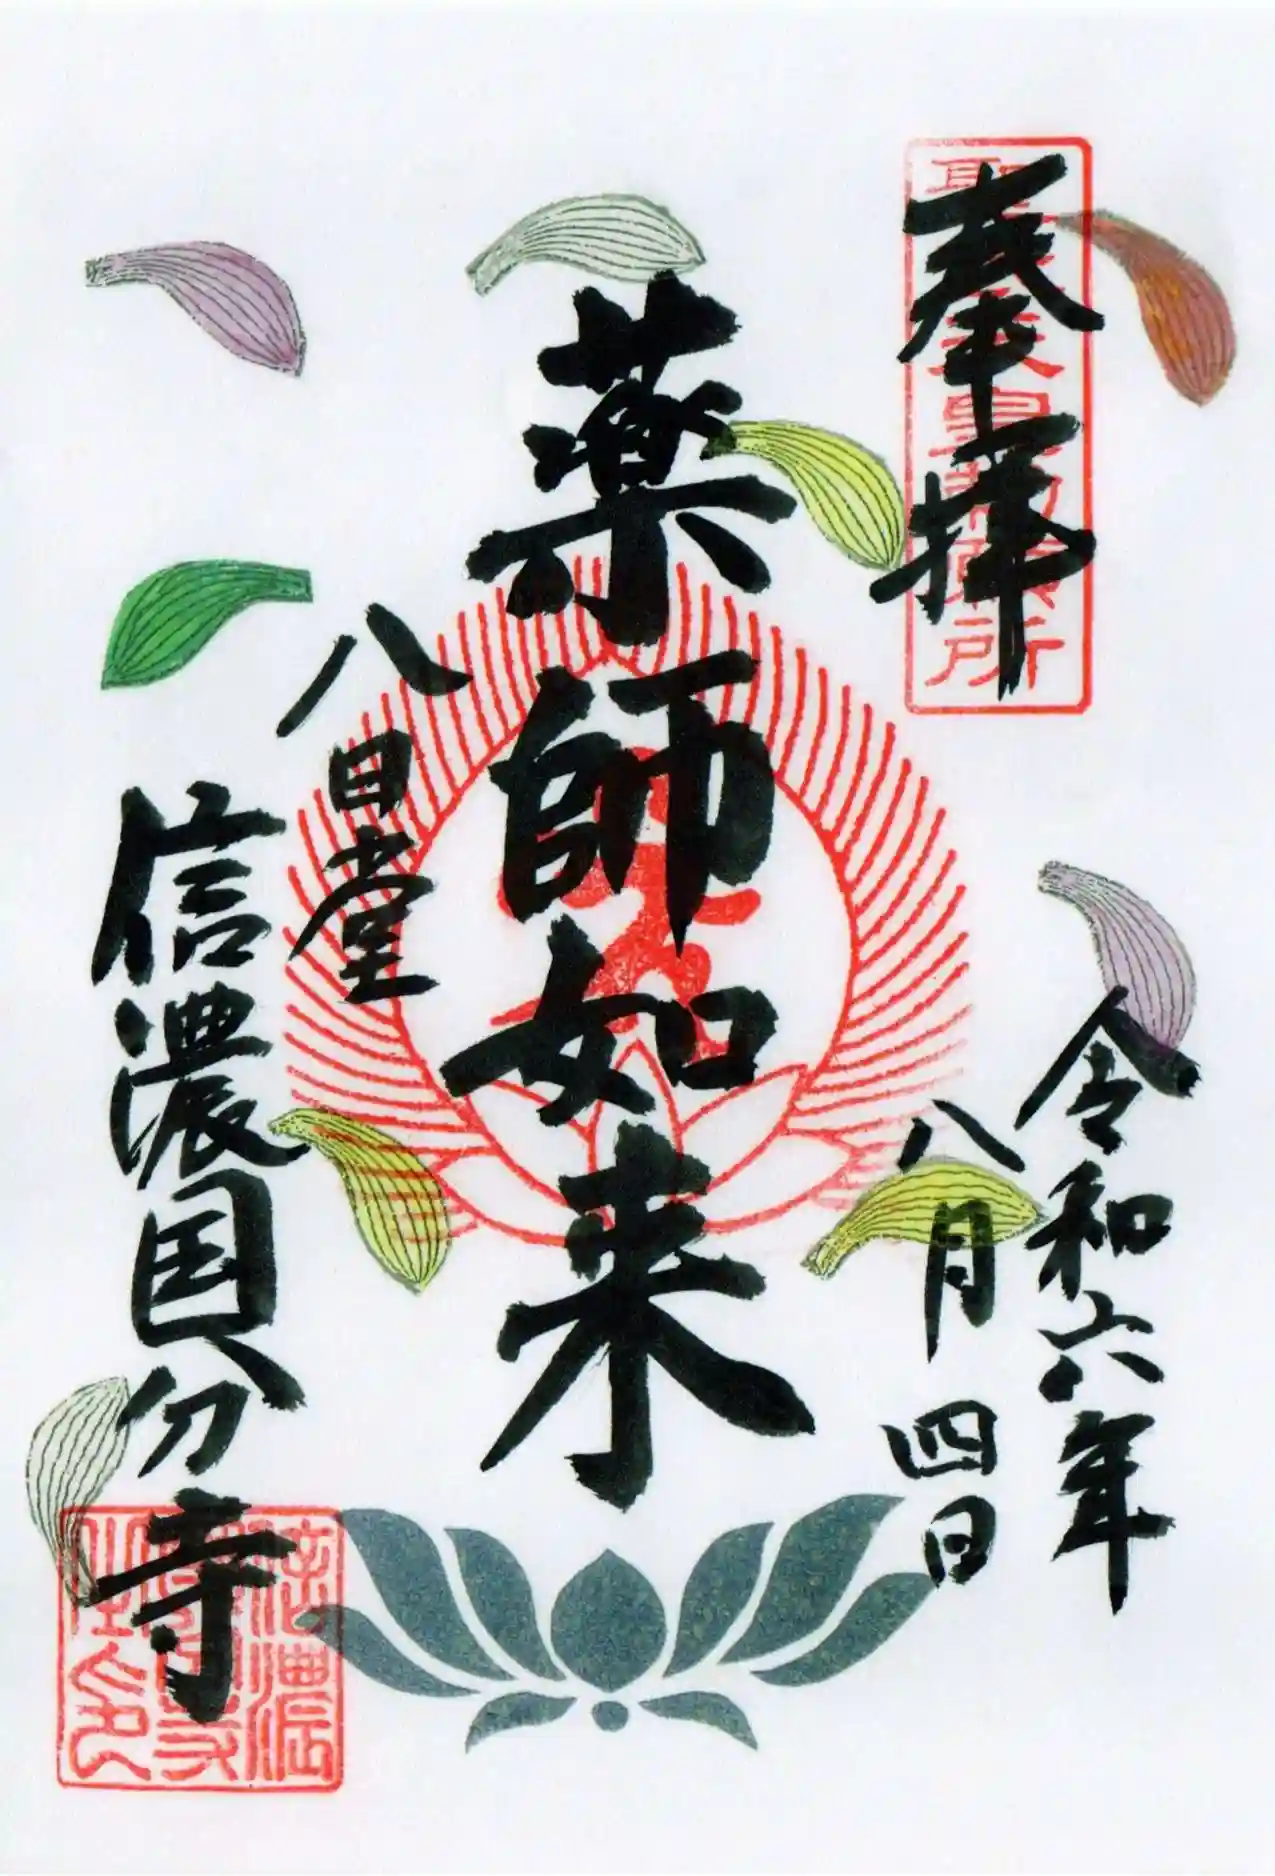 奉拝
令和六年
八月四日
薬師如来
八日堂
信濃国分寺